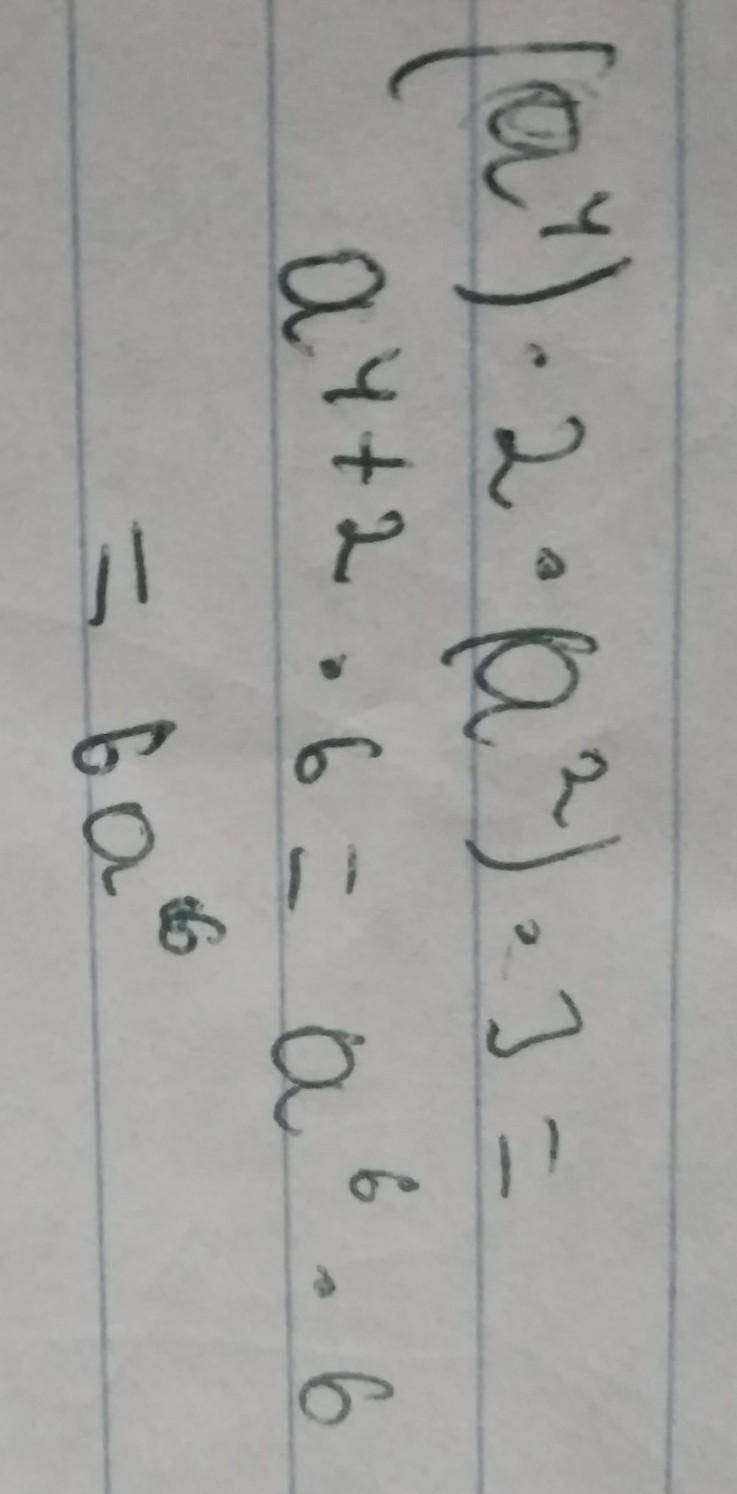 (a⁴) · 2 · (a²) · 3 =
a⁴⁺² · 6 = a⁶ · 6
= 6a⁶